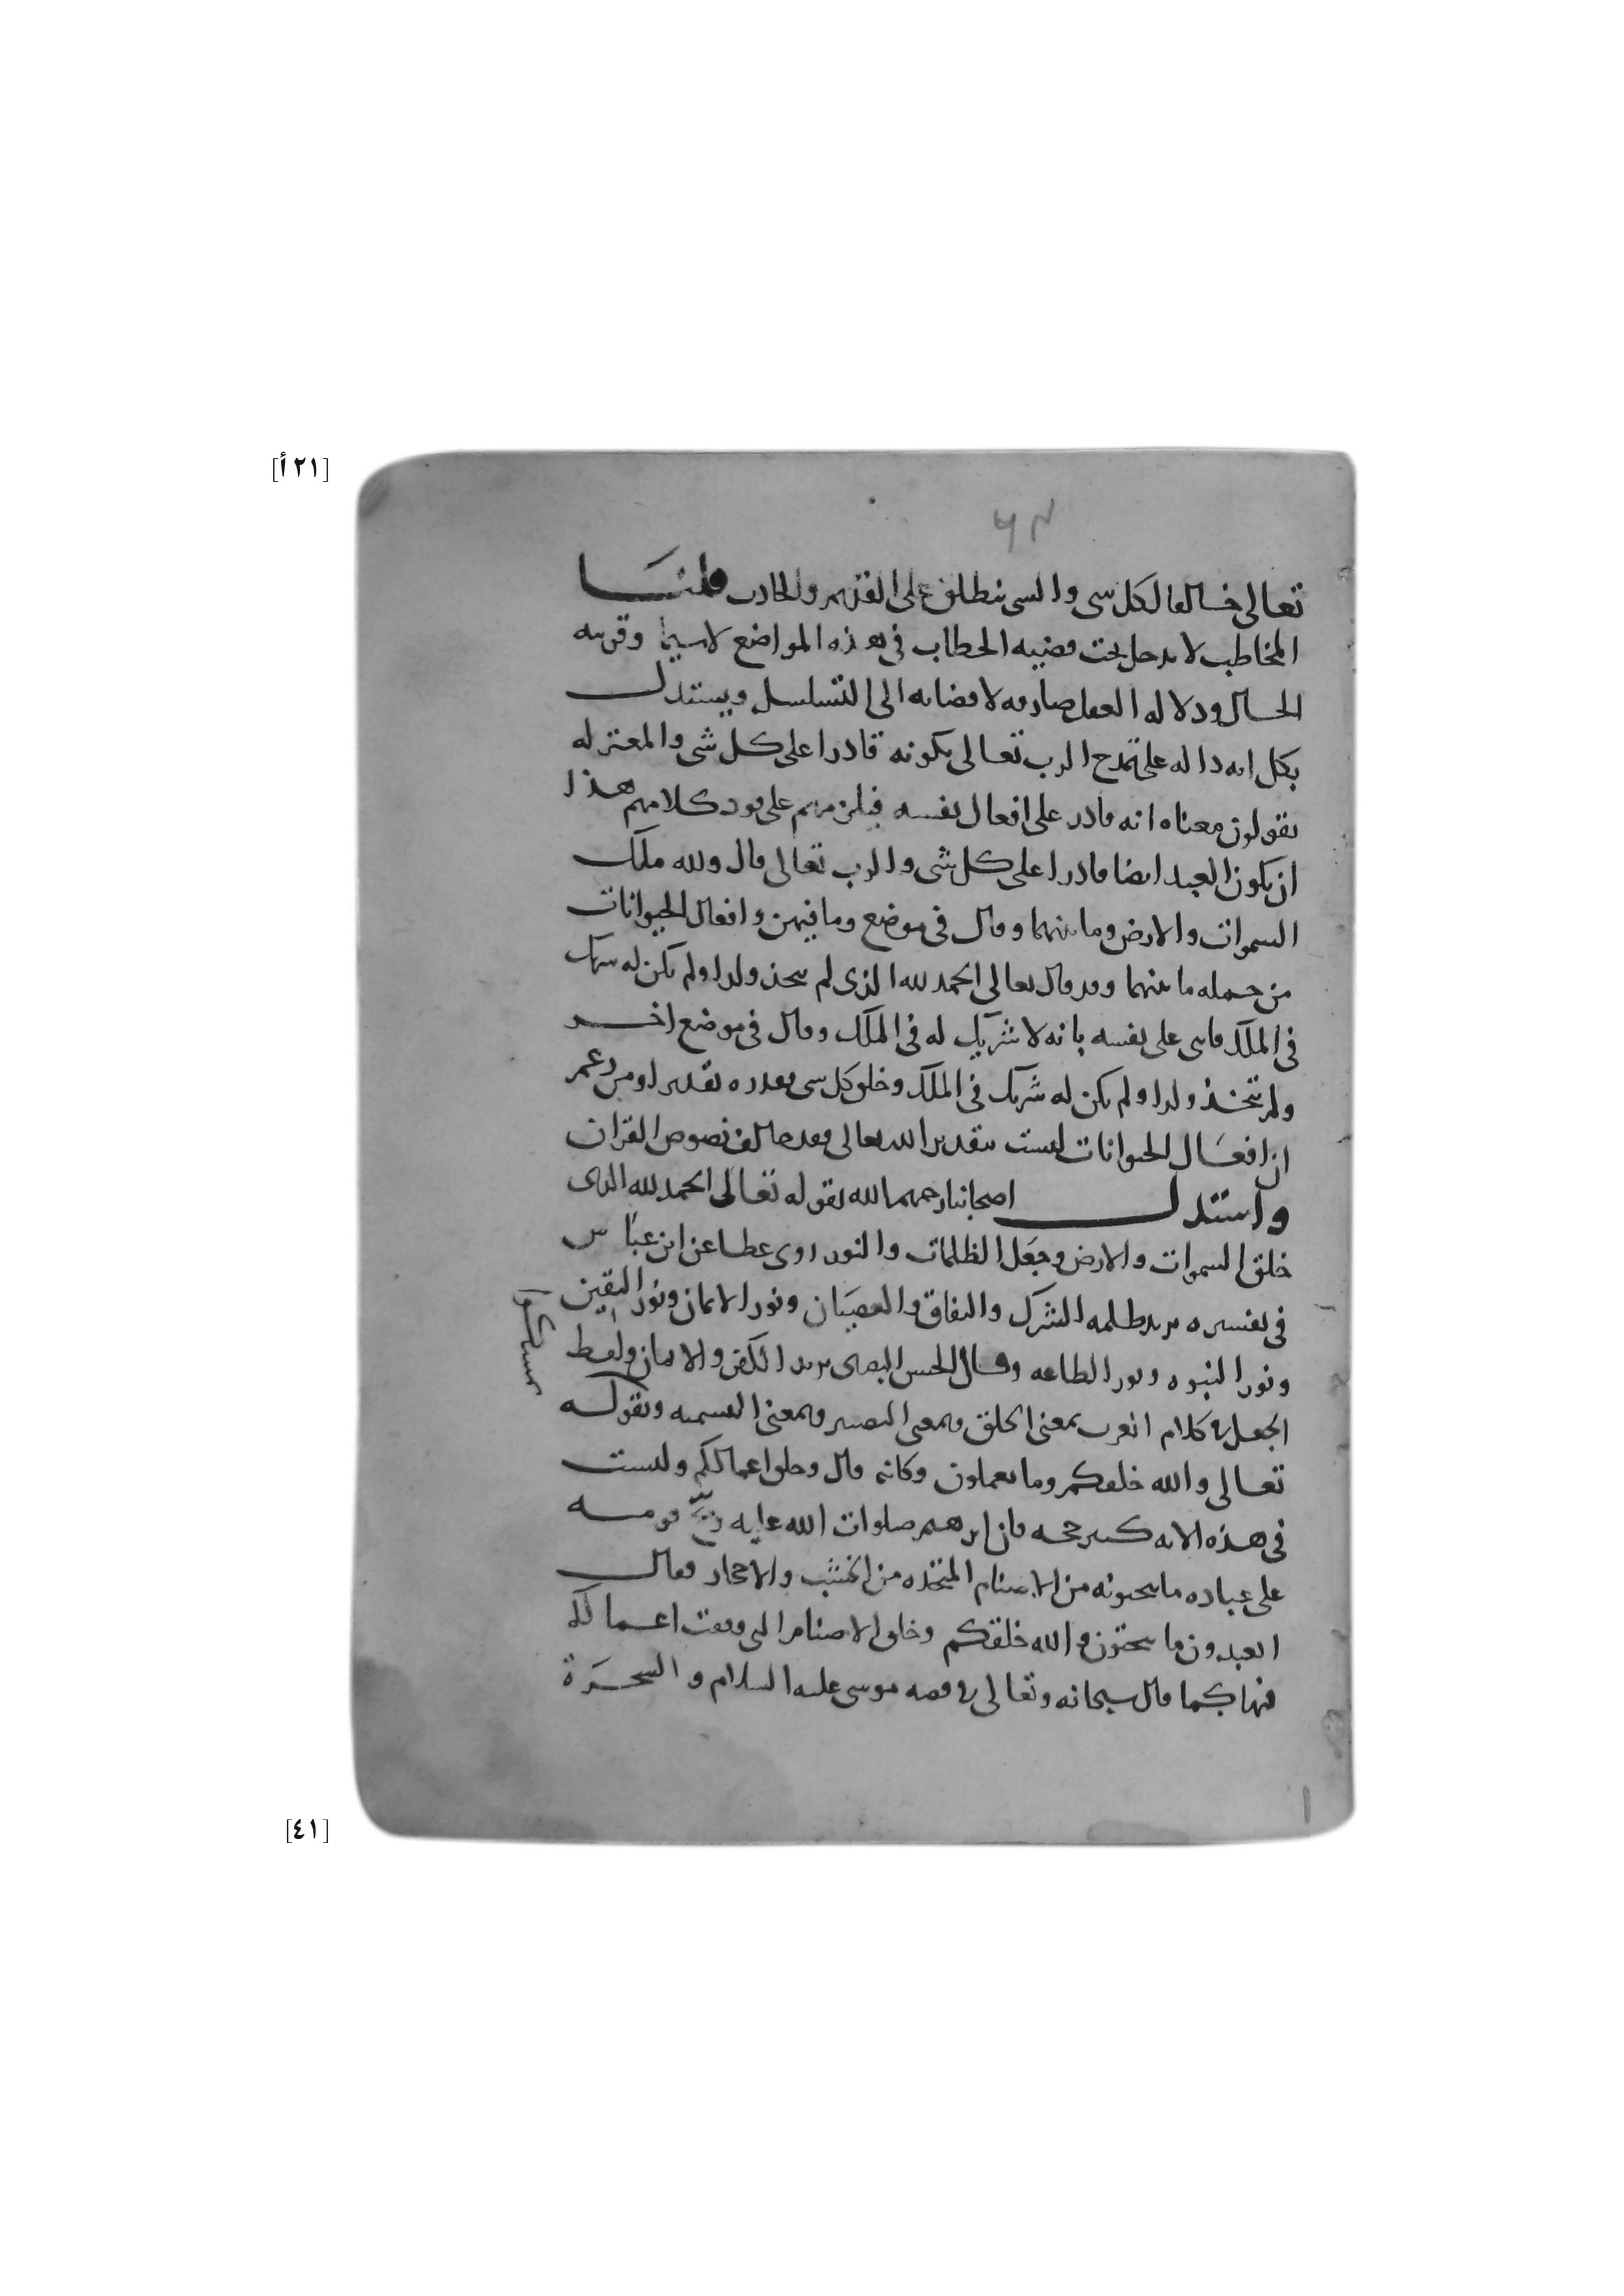 [٢١ أ]
تعالى خالقا لكل شى والشى ينطلق على القديم والحادث قلنا
المخاطب لا يدخل تحت قضيه الخطاب فى هذه المواضع لا سيما وقرينه
الحال ودلاله العقل صارفه لافضايه الى التسلسل ويستدل
بكل ايه داله على تمدح الرب تعالى بكونه قادرا على كل شى والمعتزله
يقولون معناه انه قادر على افعال نفسه فيلزمهم على قود كلامهم هذا
ان يكون العبد ايضا قادرا على كل شى والرب تعالى قال ولله ملك
السموات والارض وما بينهما وقال فى موضع وما فيهن وافعال الحيوانات
من جمله ما بينهما وقد قال تعالى الحمد لله الذى لم يتخذ ولدا ولم يكن له شريك
فى الملك فاثنى على نفسه بانه لا شريك له فى الملك وقال فى موضع اخر
ولم يتخذ ولدا ولم يكن له شريك فى الملك وخلق كل شى فقدره تقديرا ومن زعم
ان افعال الحيوانات ليست بتقدير الله تعالى فقد خالف نصوص القران
واستدل اصحابنا رحمهم الله بقوله تعالى الحمد لله الذى
خلق السموات والارض وجعل الظلمات والنور روى عطا عن ابن عباس
فى تفسيره يريد ظلمه الشرك والنفاق والعصيان ونور الايمان ونور اليقين
ونور النبوه ونور الطاعه وقال الحسن البصرى يريد الكفر والايمان ولفظ
الجعل فى كلام العرب بمعنى الخلق وبمعنى التصيير وبمعنى التسميه وبقوله
تعالى والله خلقكم وما تعملون وكانه قال وخلق اعمالكم وليست
فى هذه الايه كبير حجه فان ابرهيم صلوات الله عليه وبخ قومه
على عباده ما ينحتونه من الاصنام المتخذه من الخشب والاحجار فقال
اتعبدون ما تنحتون والله خلقكم وخلق الاصنام التى وقعت اعمالكم
فيها كما قال سبحانه وتعالى فى قصه موسى عليه السلام والسحرة
[٤١]